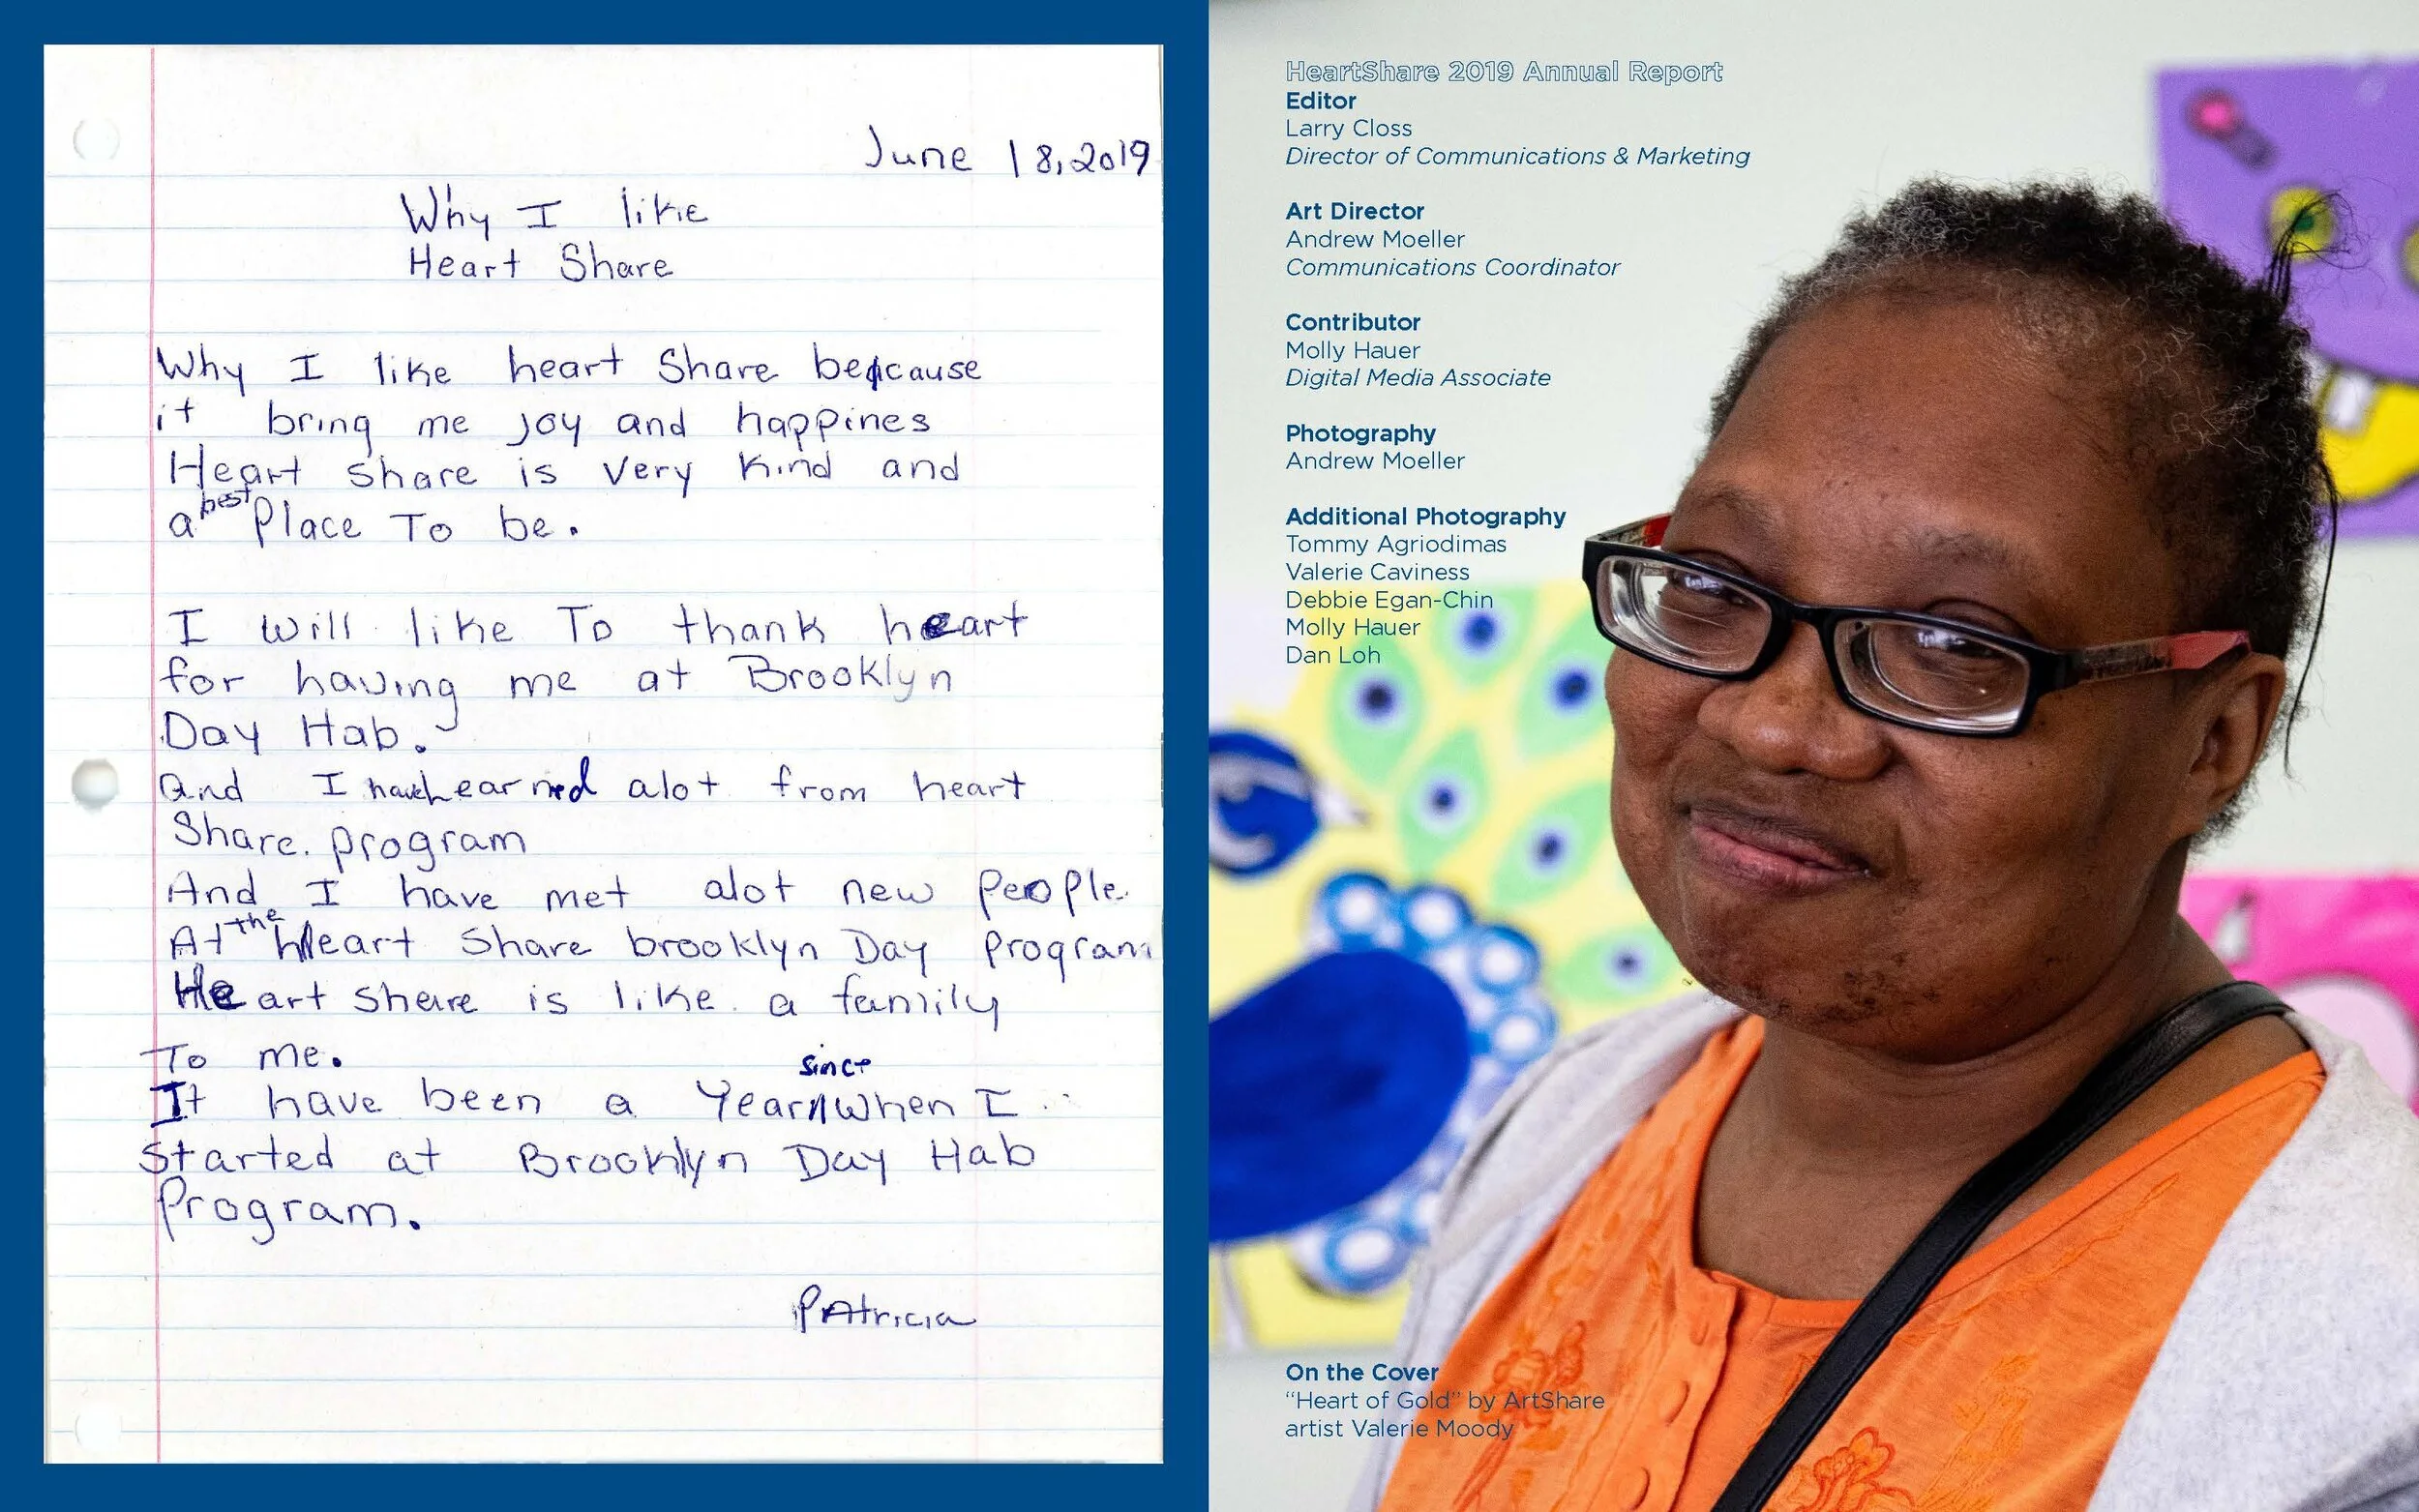 June 18, 2019
Why I like
Heart Share
Why I like heart Share because
it bring me joy and happines
Heart share is very kind and
a best Place To be.
I will like To thank heart
for having me at Brooklyn
Day Hab.
And I have learned alot from heart
Share. program
And I have met alot new people
At the Heart Share brooklyn Day program
Heart share is like a family
To me.
It have been a Year since when I
started at Brooklyn Day Hab
Program.
PAtricia
HeartShare 2019 Annual Report
Editor
Larry Closs
Director of Communications & Marketing
Art Director
Andrew Moeller
Communications Coordinator
Contributor
Molly Hauer
Digital Media Associate
Photography
Andrew Moeller
Additional Photography
Tommy Agriodimas
Valerie Caviness
Debbie Egan-Chin
Molly Hauer
Dan Loh
On the Cover
“Heart of Gold” by ArtShare
artist Valerie Moody